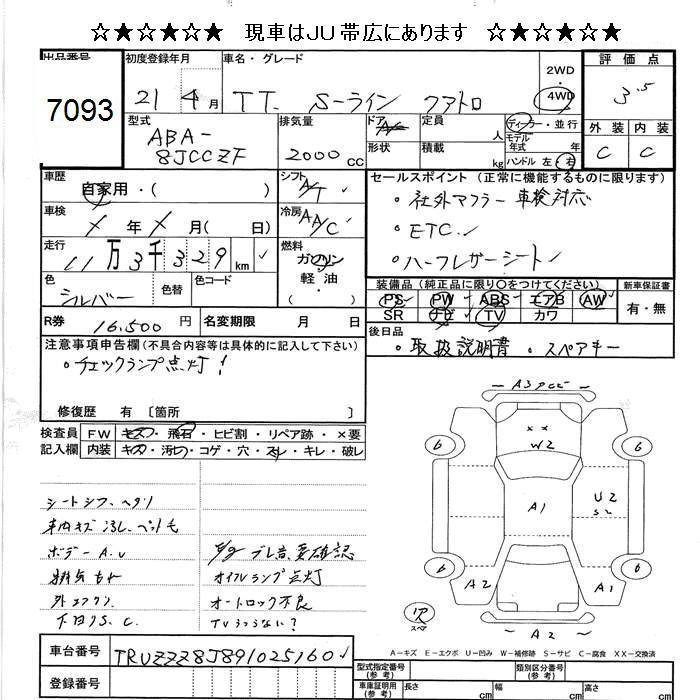 ☆★☆★☆★ 現車はJU帯広にあります ☆★☆★☆★
出品番号
7093
初度登録年月
21 4月
車名・グレード
TT. S-ライン クアトロ
2WD
4WD
評価点
3.5
外装 内装
C C
型式
ABA-
8JCCZF
排気量
2000 CC
ドア
形状
定員 人
積載 kg
ディーラー・並行
モデル
年式 年
ハンドル 左・右
車歴
自家用・( )
シフト
A/T
車検
年 月( 日)
冷房
AA/C
走行
11万3千329 km
燃料
ガソリン
軽油
( )
色
シルバー
色替
色コード
R券 16.500円
名変期限 月 日
セールスポイント(正常に機能するものに限ります)
・社外マフラー 車検対応
・ETC
・ハーフレザーシート
装備品(純正品に限り○をつけてください)
PS PW ABS エアB AW
SR ナビ TV カワ
新車保証書
有・無
後日品
・取扱説明書 ・スペアキー
注意事項申告欄(不具合内容等は具体的に記入して下さい)
・チェックランプ点灯!
修復歴 有〔箇所 〕
検査員
記入欄
FW キズ・飛石・ヒビ割・リペア跡・×要
内装 キズ・汚れ・コゲ・穴・スレ・キレ・破レ
ボデーA.U
下回りS.C.
ブレ音、要確認
オイルランプ点灯
オートロック不良
TVうつらない?
A3
W2
A1
U2
S2
A2
A1
A2
6
6
6
6
スペア
A−キズ E−エクボ U−凹み W−補修跡 S−サビ C−腐食 XX−交換済
車台番号
TRUZZZ8J891025160
登録番号
型式指定番号
(参考)
類別区分番号
(参考)
車庫証明用
(参考)
長さ cm
幅 cm
高さ cm